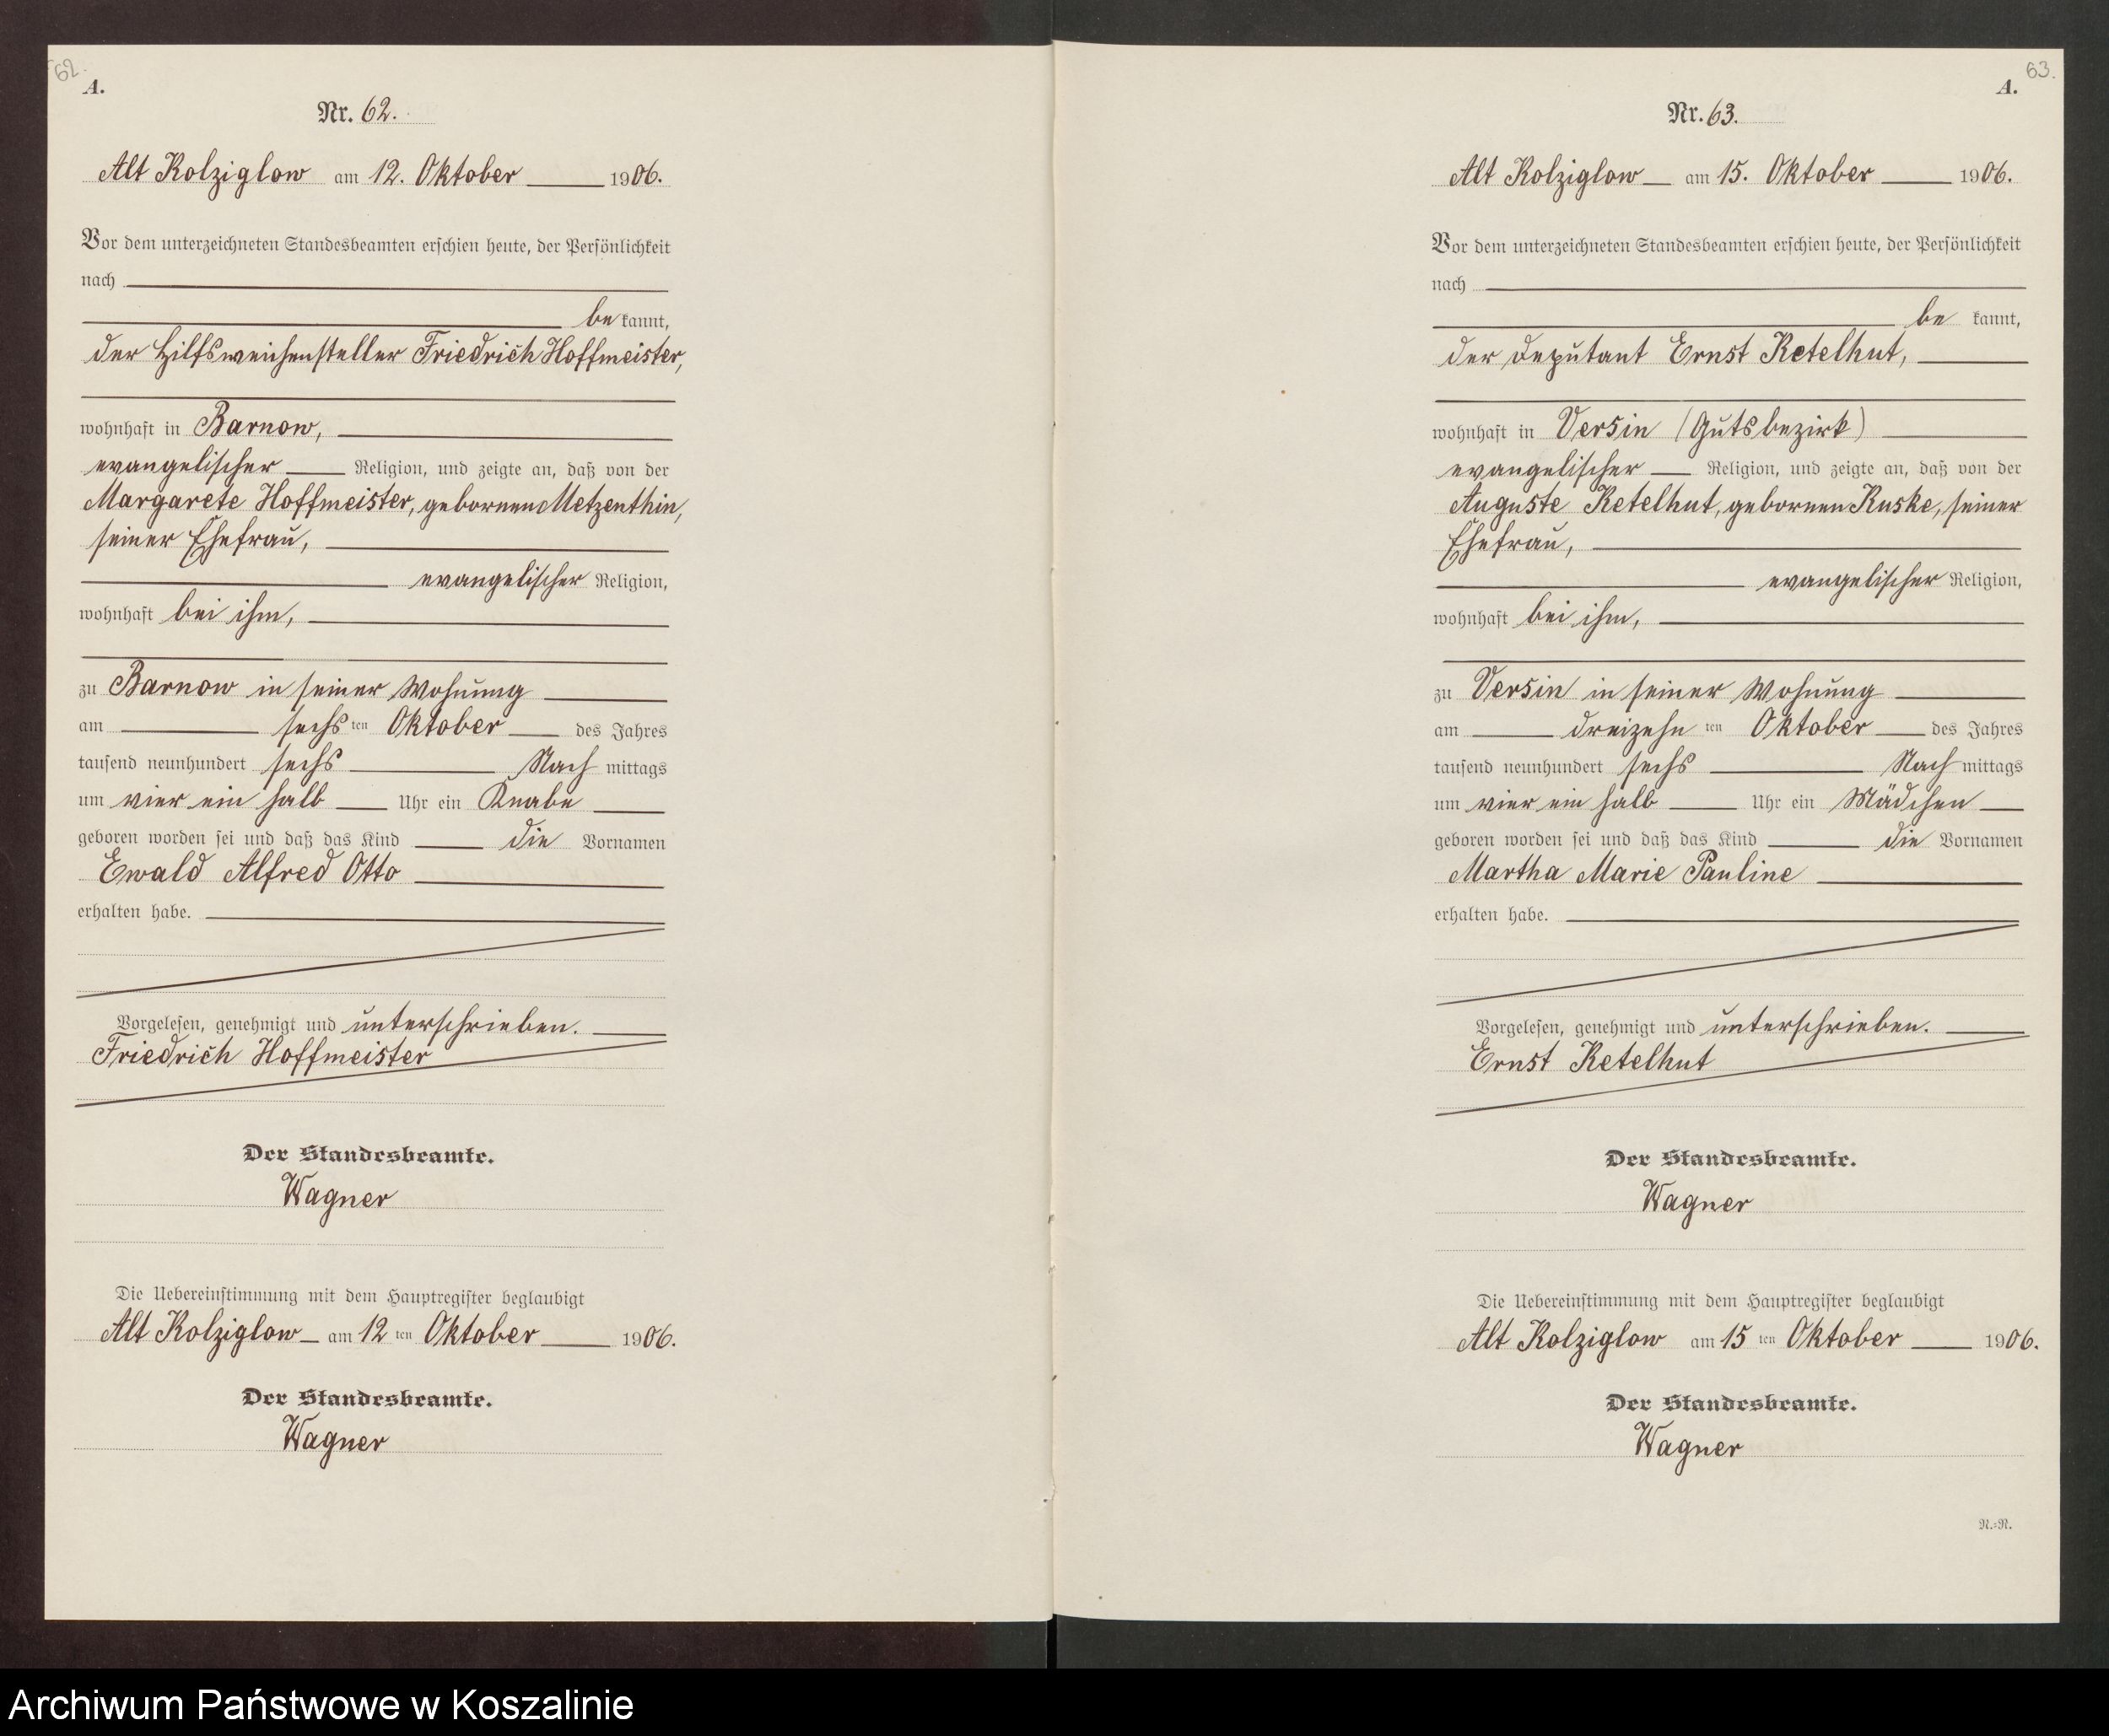 62.
A.
Nr. 62.
Alt Kolziglow am 12. Oktober 1906.
Vor dem unterzeichneten Standesbeamten erschien heute, der Persönlichkeit
nach
be kannt,
der Hilfsweichensteller Friedrich Hoffmeister,
wohnhaft in Barnow,
evangelischer Religion, und zeigte an, daß von der
Margarete Hoffmeister, gebornen Metzenthin,
seiner Ehefrau,
evangelischer Religion,
wohnhaft bei ihm,
zu Barnow in seiner Wohnung
am sechs ten Oktober des Jahres
tausend neunhundert sechs Nach mittags
um vier ein halb Uhr ein Knabe
geboren worden sei und daß das Kind die Vornamen
Ewald Alfred Otto
erhalten habe.
Vorgelesen, genehmigt und unterschrieben.
Friedrich Hoffmeister
Der Standesbeamte.
Wagner
Die Uebereinstimmung mit dem Hauptregister beglaubigt
Alt Kolziglow am 12 ten Oktober 1906.
Der Standesbeamte.
Wagner
63.
A.
Nr. 63.
Alt Kolziglow am 15. Oktober 1906.
Vor dem unterzeichneten Standesbeamten erschien heute, der Persönlichkeit
nach
be kannt,
der Deputant Ernst Ketelhut,
wohnhaft in Versin (Gutsbezirk)
evangelischer Religion, und zeigte an, daß von der
Auguste Ketelhut, gebornen Kuske, seiner
Ehefrau,
evangelischer Religion,
wohnhaft bei ihm,
zu Versin in seiner Wohnung
am dreizehn ten Oktober des Jahres
tausend neunhundert sechs Nach mittags
um vier ein halb Uhr ein Mädchen
geboren worden sei und daß das Kind die Vornamen
Martha Marie Pauline
erhalten habe.
Vorgelesen, genehmigt und unterschrieben.
Ernst Ketelhut
Der Standesbeamte.
Wagner
Die Uebereinstimmung mit dem Hauptregister beglaubigt
Alt Kolziglow am 15 ten Oktober 1906.
Der Standesbeamte.
Wagner
R.=R.
Archiwum Państwowe w Koszalinie